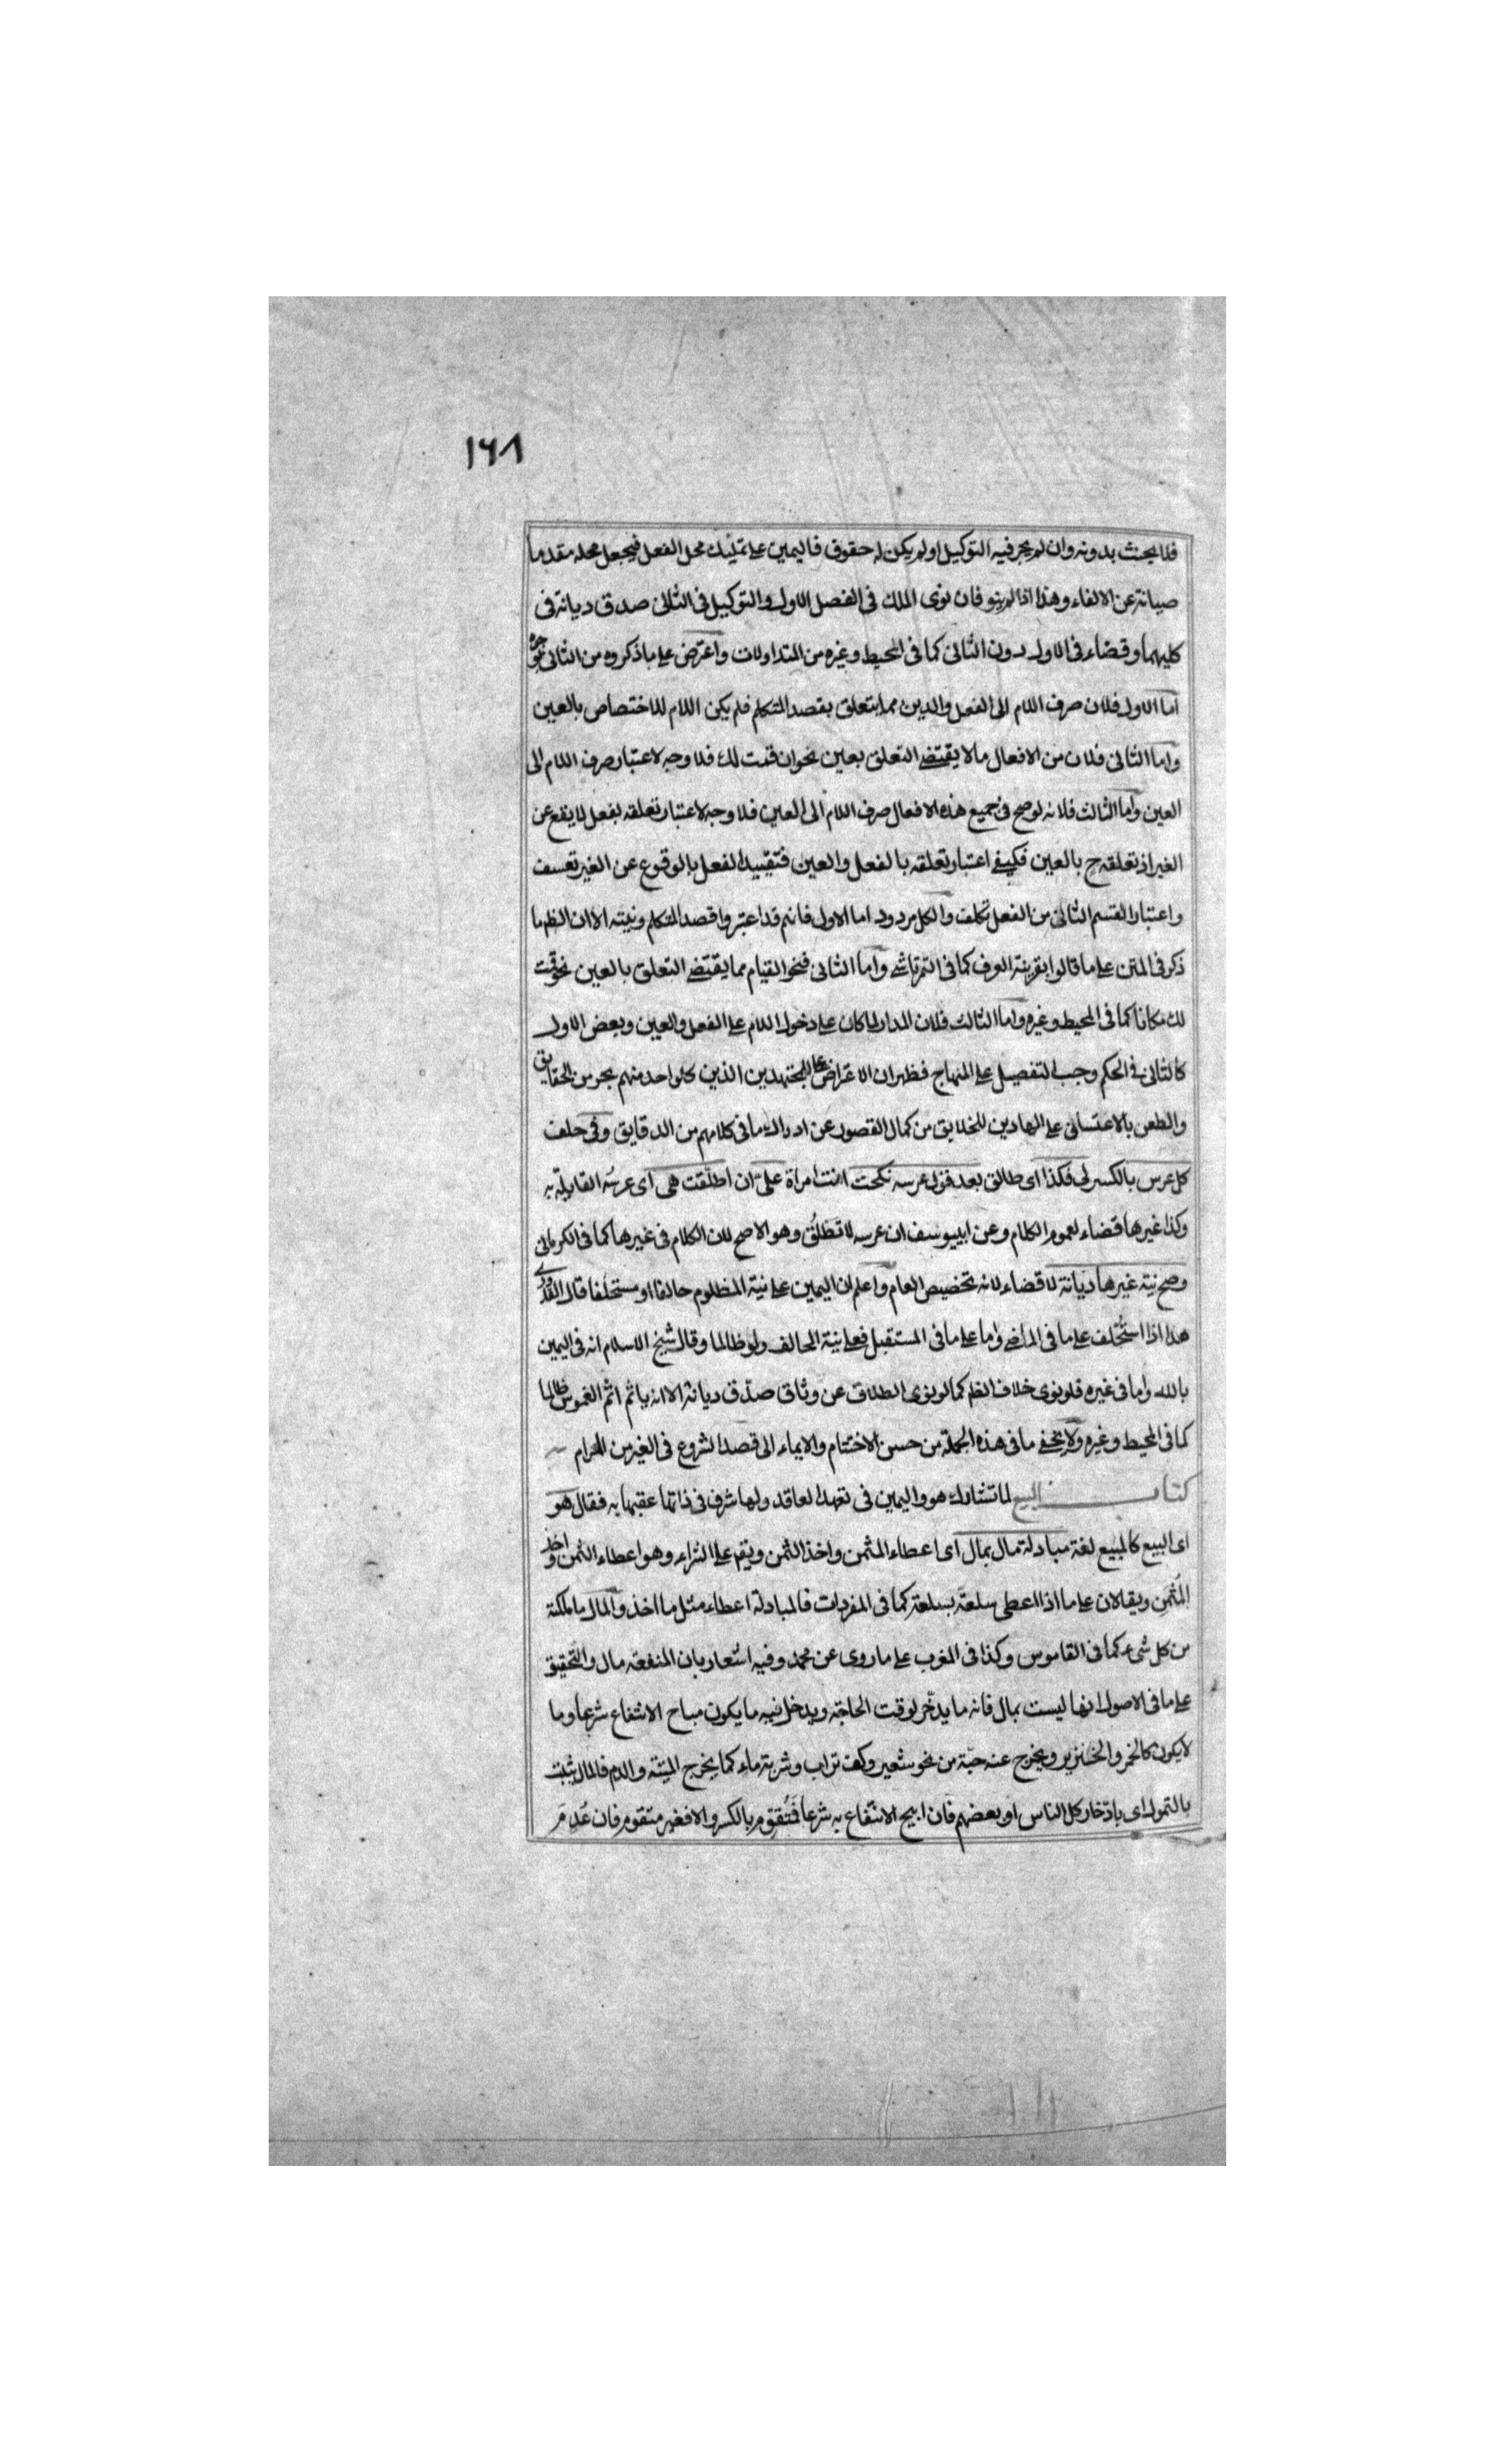 ١٦٨
فلا يحنث بدونه وان لم يجر فيه التوكيل او لم يكن له حقوق فاليمين على تمليك محل الفعل فيجعل محله مقدما
صيانة عن الالغاء وهذا اذا لم ينو فان نوى الملك فى الفصل الاول والتوكيل فى الثانى صدق ديانة فى
كليهما وقضاء فى الاول دون الثانى كما فى المحيط وغيره من المتداولات واعترض على ما ذكروه من الثانى بوجوه
اما الاول فلان صرف اللام الى الفعل والعين مما يتعلق بقصد المتكلم فلم يكن اللام للاختصاص بالعين
واما الثانى فلان من الافعال ما لا يقتضى التعلق بعين نحو ان قمت لك فلا وجه لاعتبار صرف اللام الى
العين واما الثالث فلانه لو صح فى جميع هذه الافعال صرف اللام الى العين فلا وجه لاعتبار تعلقه بفعل لا يقع عن
الغير اذ تعلقه ح بالعين فكيف اعتبار تعلقه بالفعل والعين فتقييد الفعل بالوقوع عن الغير تعسف
واعتبار القسم الثانى من الفعل تكلف والكل مردود اما الاول فانهم قد اعتبروا قصد المتكلم ونيته الا ان الظ ما
ذكر فى المتن على ما قالوا بقرينة العرف كما فى التمرتاشى واما الثانى فنحو القيام مما يقتضى التعلق بالعين نحو قمت
لك مكانا كما فى المحيط وغيره واما الثالث فلان المدار لما كان على دخول اللام على الفعل والعين وبعض الاول
كالثانى فى الحكم وجب التفصيل على المنهاج فظهر ان الاعتراض على المجتهدين الذين كل واحد منهم بحر من الحقايق
والطعن بالاعتساف على الهادين للخلايق من كمال القصور عن ادراك ما فى كلامهم من الدقايق وفى حلف
كل عرس بالكسر لى فكذا اى طالق بعد قول عرسه نكحت انت امراة علىّ ان اطلّقت هى اى عرسُه القايلة به
وكذا غيرها قضاء لعموم الكلام وعن ابيوسف ان عرسه لا تطلُق وهو الاصح لان الكلام فى غيرها كما فى الكرمانى
وصح نية غيرها ديانة لا قضاء لانه تخصيص العام واعلم ان اليمين على نية المظلوم حالفا او مستحلفا قال القدورى
هذا اذا استُحلف على ما فى الماضى واما على ما فى المستقبل فعلى نية الحالف ولو ظالما وقال شيخ الاسلام انه فى اليمين
بالله واما فى غيره فلو نوى خلاف الظ كما لو نوى الطلاق عن وثاق صدّق ديانة الا انه ياثم اثم الغموس ظالما
كما فى المحيط وغيره ولا يخفى ما فى هذه الجملة من حسن الاختتام والايماء الى قصد الشروع فى الغير من المرام
كتاب البيع لما تشارك هو واليمين فى تعهد العاقد ولها شرف فى ذاتها عقبها به فقال هو
اى البيع كالمبيع لغة مبادلة مال بمال اى اعطاء المثمن واخذ الثمن ويقع على الشراء وهو اعطاء الثمن واخذ
المُثمَن ويقالان على ما اذا اعطى سلعة بسلعة كما فى المفردات فالمبادلة اعطاء مثل ما اخذ والمال ما ملكته
من كل شىء كما فى القاموس وكذا فى المغرب على ما روى عن محمد وفيه اشعار بان المنفعة مال والتحقيق
على ما فى الاصول انها ليست بمال فانه ما يدّخر لوقت الحاجة ويدخل فيه ما يكون مباح الانتفاع شرعا وما
لا يكون كالخمر والخنزير ويخرج عنه حبّة من نحو شعير وكف تراب وشربة ماء كما يخرج الميتة والدم فالمال يثبت
بالتمول اى بادّخار كل الناس او بعضهم فان ابيح الانتفاع به شرعا فمُتقوِّم بالكسر والا فغير متقوم فان عُدِمَ